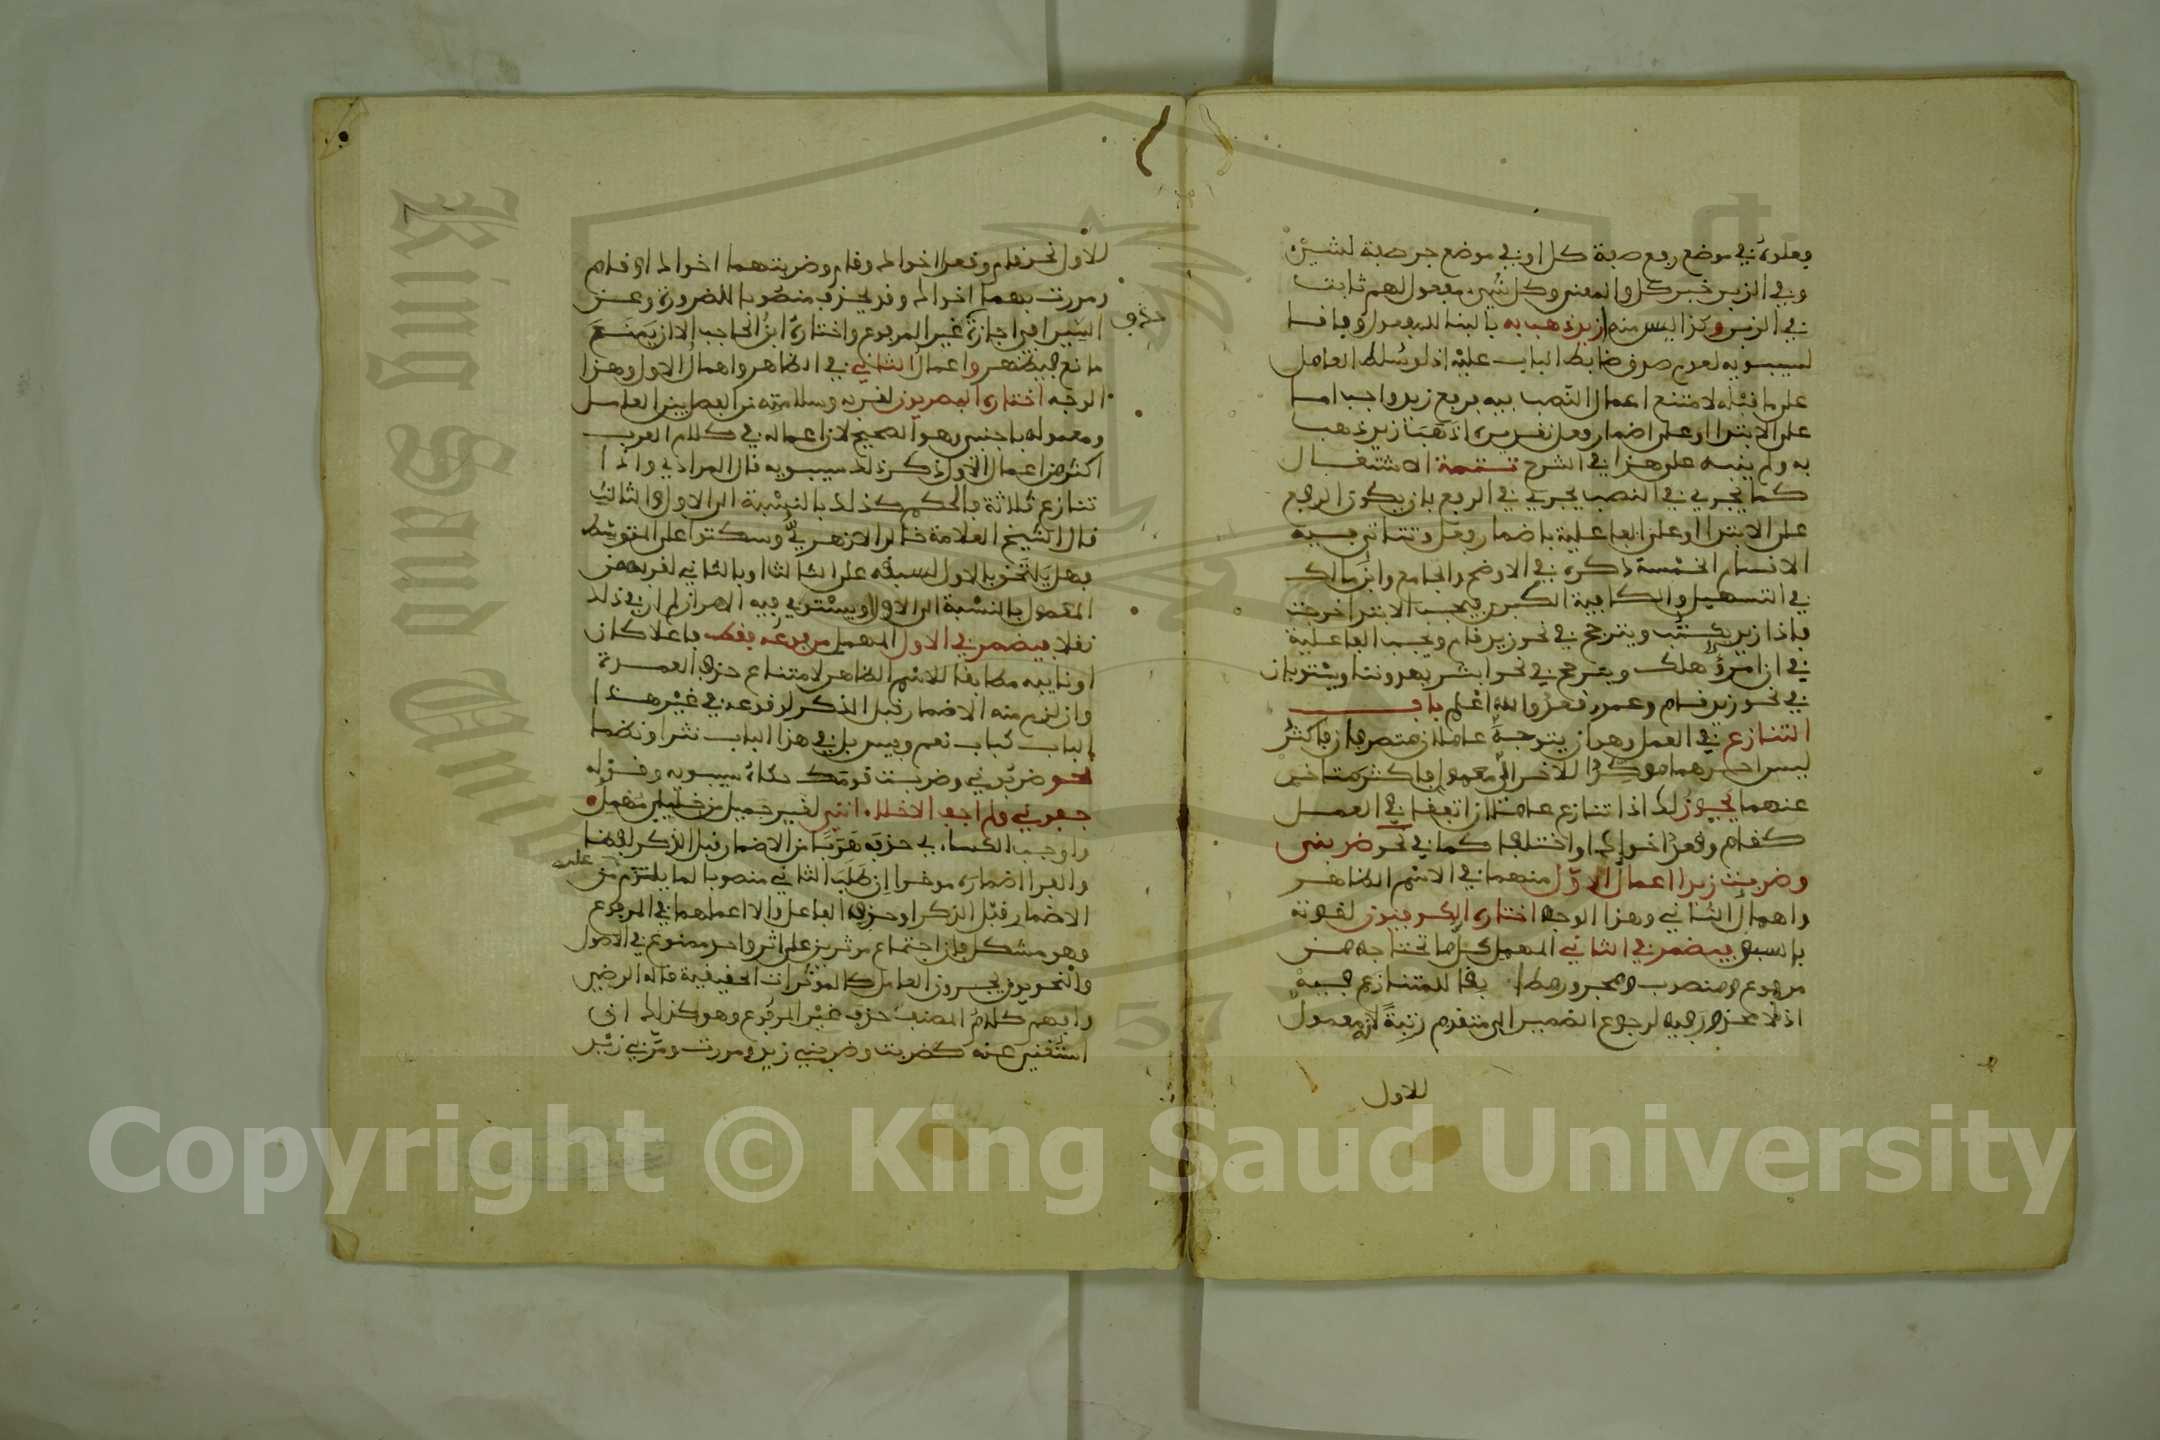 فعلوه في موضع رفع صفة كل او في موضع جر صفة لشيء
وفي الزبر خبر كل والمعنى وكل شيء مفعول لهم ثابت
في الزبر وكذا ليس منه ازيد ذهب به بالبناء للمفعول وفاقا
لسيبويه لعدم صدق ضابط الباب عليه اذ لو سلط العامل
على ما قبله لامتنع اعمال النصب فيه برفع زيد واجب اما
على الابتدا او على اضمار فعل تقديره اذهب زيد ذهب
به ولم ينبه على هذا في الشرح تتمة الاشتغال
كما يجري في النصب يجري في الرفع بان يكون الرفع
على الابتدا او على الفاعلية باضمار فعل وتتاتى فيه
الاقسام الخمسة ذكره في الاوضح والجامع وابن مالك
في التسهيل والكافية الكبرى فيجب الابتدا خرجت
فاذا زيد يكتب ويترجح في نحو زيد قام ويجب الفاعلية
في ان امرؤ هلك ويترجح في نحو ابشر يهدوننا ويستويان
في نحو زيد قام وعمرو قعد والله اعلم باب
التنازع في العمل وهو ان يتوجه عاملان متصرفان فاكثر
ليس احدهما موكدا للاخر الى معمول فاكثر متاخر
عنهما يجوز لك اذا تنازع عاملان اتفقا في العمل
كقام وقعد اخواك او اختلفا كما في نحو ضربني
وضربت زيدا اعمال الاول منهما في الاسم الظاهر
واهمال الثاني وهذا الوجه اختاره الكوفيون لقوته
بالسبق فيضمر في الثاني المهمل كل ما تحتاجه من
مرفوع ومنصوب ومجرور مطابقا للمتنازع فيه
اذ لا محذور فيه لرجوع الضمير الى متقدم رتبة لانه معمول
للاول
للاول نحو قام وقعدا اخواك وقام وضربتهما اخواك او قام
ومررت بهما اخواك وقد يحذف منصوبا للضرورة وعن
حذف
السيرافي اجازة غير المرفوع واختاره ابن الحاجب الا ان يمنع
مانع فيظهر واعمال الثاني في الظاهر واهمال الاول وهذا
الوجه اختاره البصريون لقربه وسلامته من الفصل بين العامل
ومعموله باجنبي وهو الصحيح لان اعماله في كلام العرب
اكثر من اعمال الاول ذكر ذلك سيبويه قال المرادي واذا
تنازع ثلاثة فالحكم كذلك بالنسبة الى الاول والثالث
قال الشيخ العلامة خالد الازهري وسكتوا على المتوسط
فهل يلتحق بالاول لسبقه على الثالث او بالثاني لقربه من
المعمول بالنسبة الى الاول او يستوي فيه الامران لم ار في ذلك
نقلا فيضمر في الاول المهمل مرفوعه فقط فاعلا كان
او نايبه مطابقا للاسم الظاهر لامتناع حذف العمدة
وان لزم منه الاضمار قبل الذكر لوقوعه في غير هذا
الباب كباب نعم وبيس بل في هذا الباب نثرا ونظما
نحو ضربوني وضربت قومك حكاه سيبويه وقوله
جفوني ولم اجف الاخلاء انني لغير جميل من خليلي مهمل
واوجب الكساءي حذفه هربا من الاضمار قبل الذكر لفظا
والفرا اضماره موخرا ان طلب الثاني منصوبا لما يلتزم من
عليه
الاضمار قبل الذكر او حذف الفاعل والا اعملهما في المرفوع
وهو مشكل فان اجتماع موثرين على اثر واحد ممنوع في الاصول
والنحويون يجرون العامل كالموثرات الحقيقية قاله الرضي
وافهم كلام المصنف حذف غير المرفوع وهو كذلك ان
استغني عنه كضربت وضربني زيد ومررت ومر بي زيد